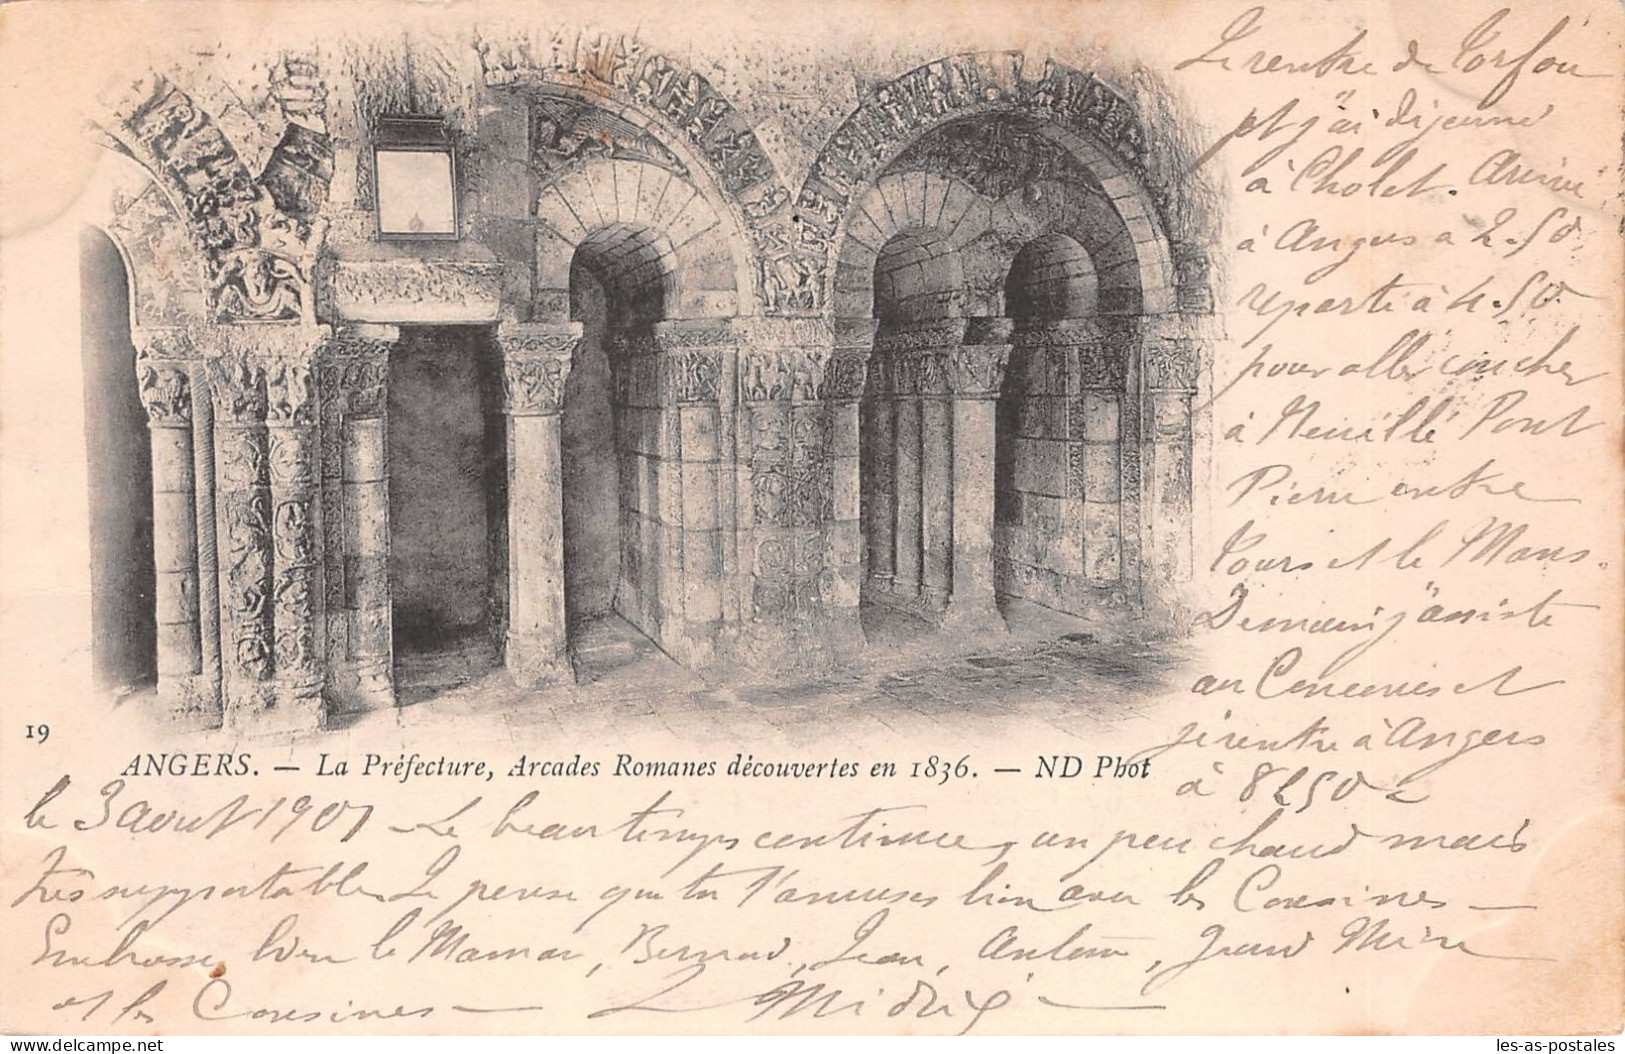 Je rentre de Torfou
et j'ai déjeuné
à Cholet. Arrivé
à Angers à 2.50
reparti à 4.50
pour aller coucher
à Neuillé Pont
Pierre entre
Tours et le Mans.
Demain j'assiste
au Concours et
je rentre à Angers
à 8h50
19
ANGERS. — La Préfecture, Arcades Romanes découvertes en 1836. — ND Phot
le 3 aout 1901 — Le beau temps continue, un peu chaud mais
très supportable. Je pense que tu t'amuses bien avec les Cousines —
Embrasse bien la Maman, Bernard, Jean, Antoine, Grand Mère
et les Cousines —
les-as-postales.delcampe.net
les-as-postales